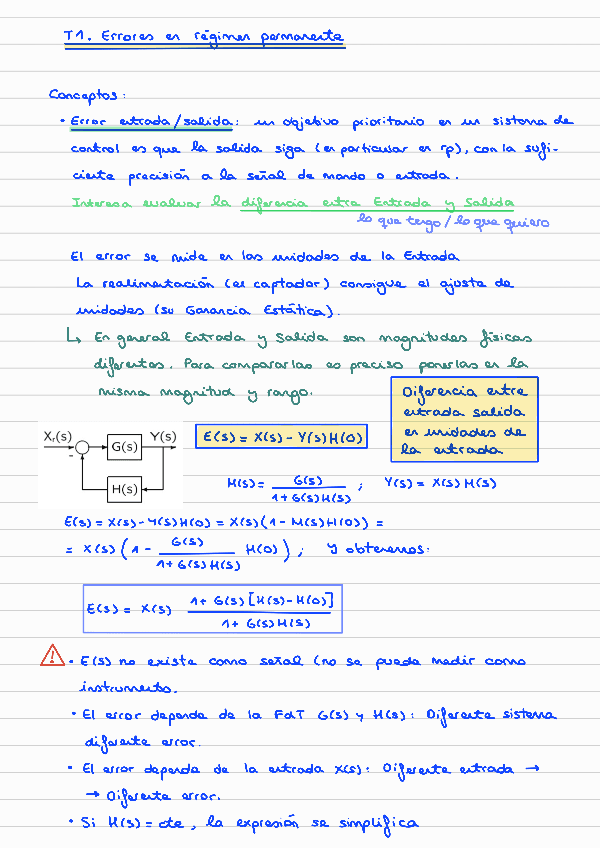 T1. Errores en régimen permanente
Conceptos:
• Error entrada/salida: un objetivo prioritario en un sistema de
control es que la salida siga (en particular en rp), con la sufi-
ciente precisión a la señal de mando o entrada.
Interesa evaluar la diferencia entre Entrada y Salida
lo que tengo / lo que quiero
El error se mide en las unidades de la Entrada
La realimentación (el captador) consigue el ajuste de
unidades (su Ganancia Estática).
↳ En general Entrada y Salida son magnitudes físicas
diferentes. Para compararlas es preciso ponerlas en la
misma magnitud y rango.
Diferencia entre
entrada salida
en unidades de
la entrada
Xr(s) G(s) Y(s)
-
H(s)
E(s) = X(s) - Y(s)H(0)
M(s) = G(s) / 1+G(s)H(s) ; Y(s) = X(s)M(s)
E(s) = X(s) - Y(s)H(0) = X(s)(1 - M(s)H(0)) =
= X(s) (1 - G(s) / 1+G(s)H(s) H(0)) ; Y obtenemos:
E(s) = X(s) 1+G(s)[H(s)-H(0)] / 1+G(s)H(s)
⚠ • E(s) no existe como señal (no se puede medir como
instrumento.
• El error depende de la FdT G(s) y H(s): Diferente sistema
diferente error.
• El error depende de la entrada X(s): Diferente entrada →
→ Diferente error.
• Si H(s) = cte, la expresión se simplifica